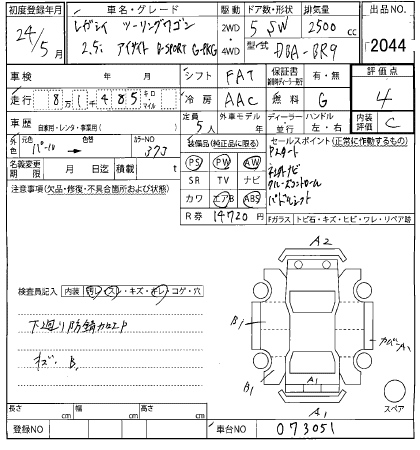 初度登録年月 車名・グレード 駆動 ドア数・形状 排気量 出品NO.
24/5月 レガシィ ツーリングワゴン 2WD 5 SW 2500cc
2.5i アイサイト B-SPORT G-PKG 4WD 型式 DBA-BR9 2044
車検 年 月 シフト FAT 保証書 有・無 評価点
走行 8万1千485 キロ マイル 冷房 AAC 燃料 G 4
車歴 自家用・レンタ・事業用( ) 定員 5人 外車モデル 年 ディーラー 並行 ハンドル 左・右 内装評価 C
外色 元色 パール 色替 カラーNO 37J
装備品(純正品に限る) セールスポイント(正常に作動するもの)
名義変更期限 月 日迄 積載 t
PS PW AW
SR TV ナビ
カワ エアB ABS
R券 14720円
Pスタート
クルーズコントロール
パドルシフト
注意事項(欠品・修復・不具合箇所および状態)
Fガラス トビ石・キズ・ヒビ・ワレ・リペア跡
A2
検査員記入 内装 汚レ・スレ・キズ・キレ・コゲ・穴
下廻り防錆加工P
キズ・B1
B1
カバーA1
B1
A1
A1
スペア
長さ cm 幅 cm 高さ cm
登録NO 車台NO 073051